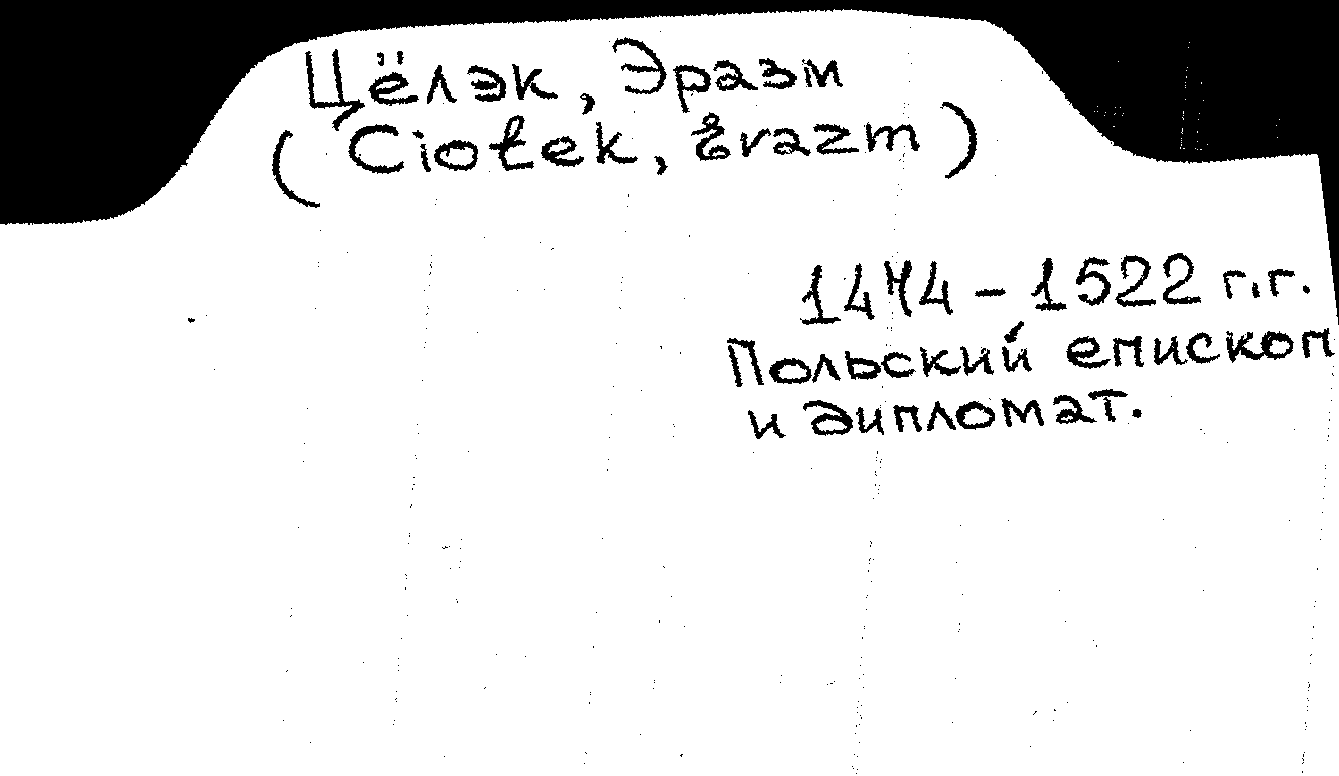 Цёлэк, Эразм
(Ciołek, Erazm)
1474 – 1522 г.г.
Польский епископ
и дипломат.